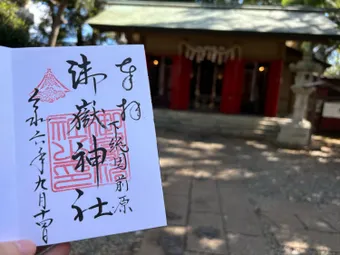 奉拝
下総国前原
御嶽神社
令和六年九月十四日